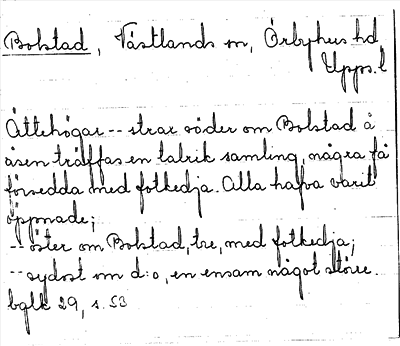 Bolstad, Västlands sn, Örbyhus hd
Upps. l
Ättehögar -- strax söder om Bolstad å
åsen träffas en talrik samling, några få
försedda med fotkedja. Alla hafva varit
öppnade;
-- öster om Bolstad, tre, med fotkedja;
-- sydost om d:o, en ensam något större.
bglk 29, s. 53